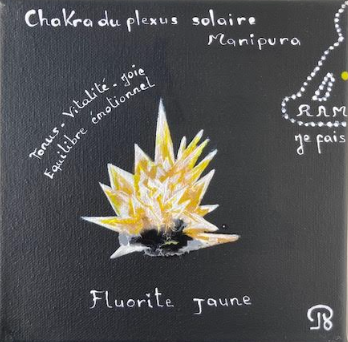 Chakra du plexus solaire
Manipura
Tonus. Vitalité. Joie
Equilibre émotionnel
RAM
je fais
Fluorite jaune